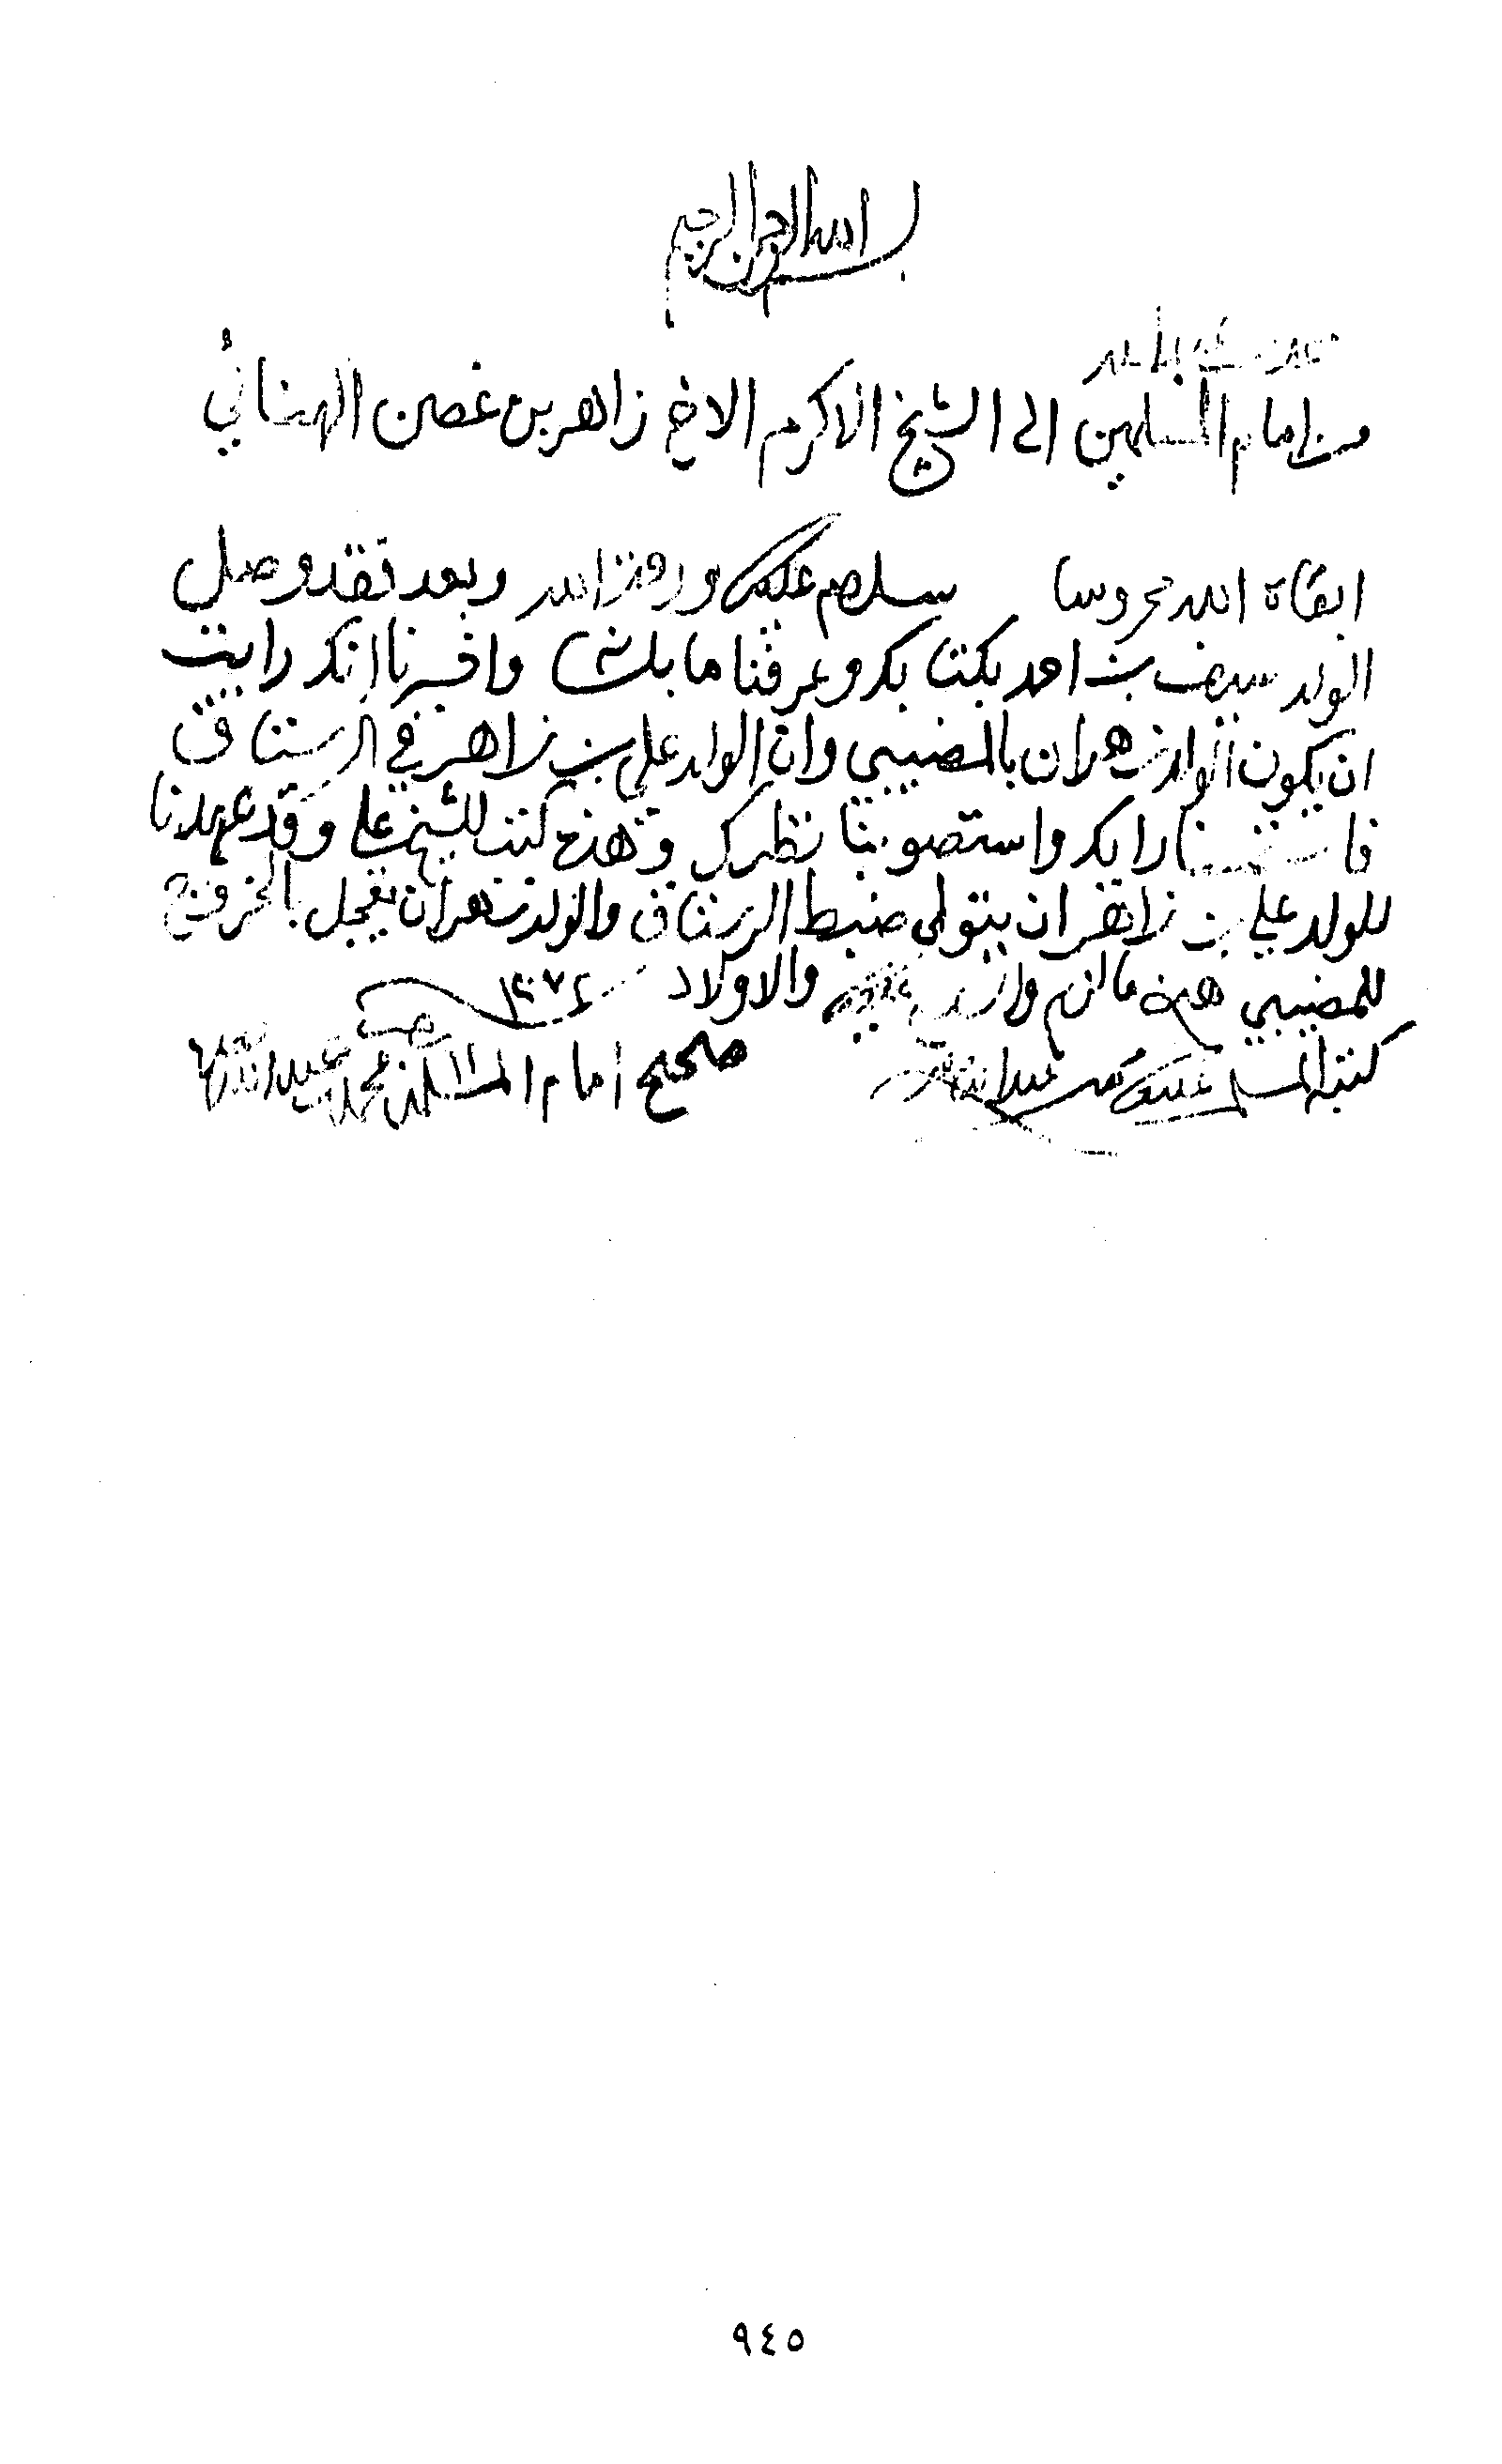 بسم الله الرحمن الرحيم
من امام المسلمين الى الشيخ الاكرم الاخ زاهر بن غصن الهنائي
ابقاه الله محروسا سلام عليك ورحمة الله وبعد فقد وصل
الولد سيف بن احمد بكتابكم وعرفنا ما به واخبرنا انكم رايت
ان يكون الولد زهران بالمضيبي وان الولد علي بن زاهر في الرستاق
رايكم واستصوبنا نظركم وهذه كتب للشيخ علي وقد عهدنا
للولد علي بن زاهر ان يتولى ضبط الرستاق والولد زهران يعجل بالخروج
للمضيبي هذه ما لزم والاولاد
كتبه صحيح امام المسلمين محمد بن عبدالله
٩٤٥